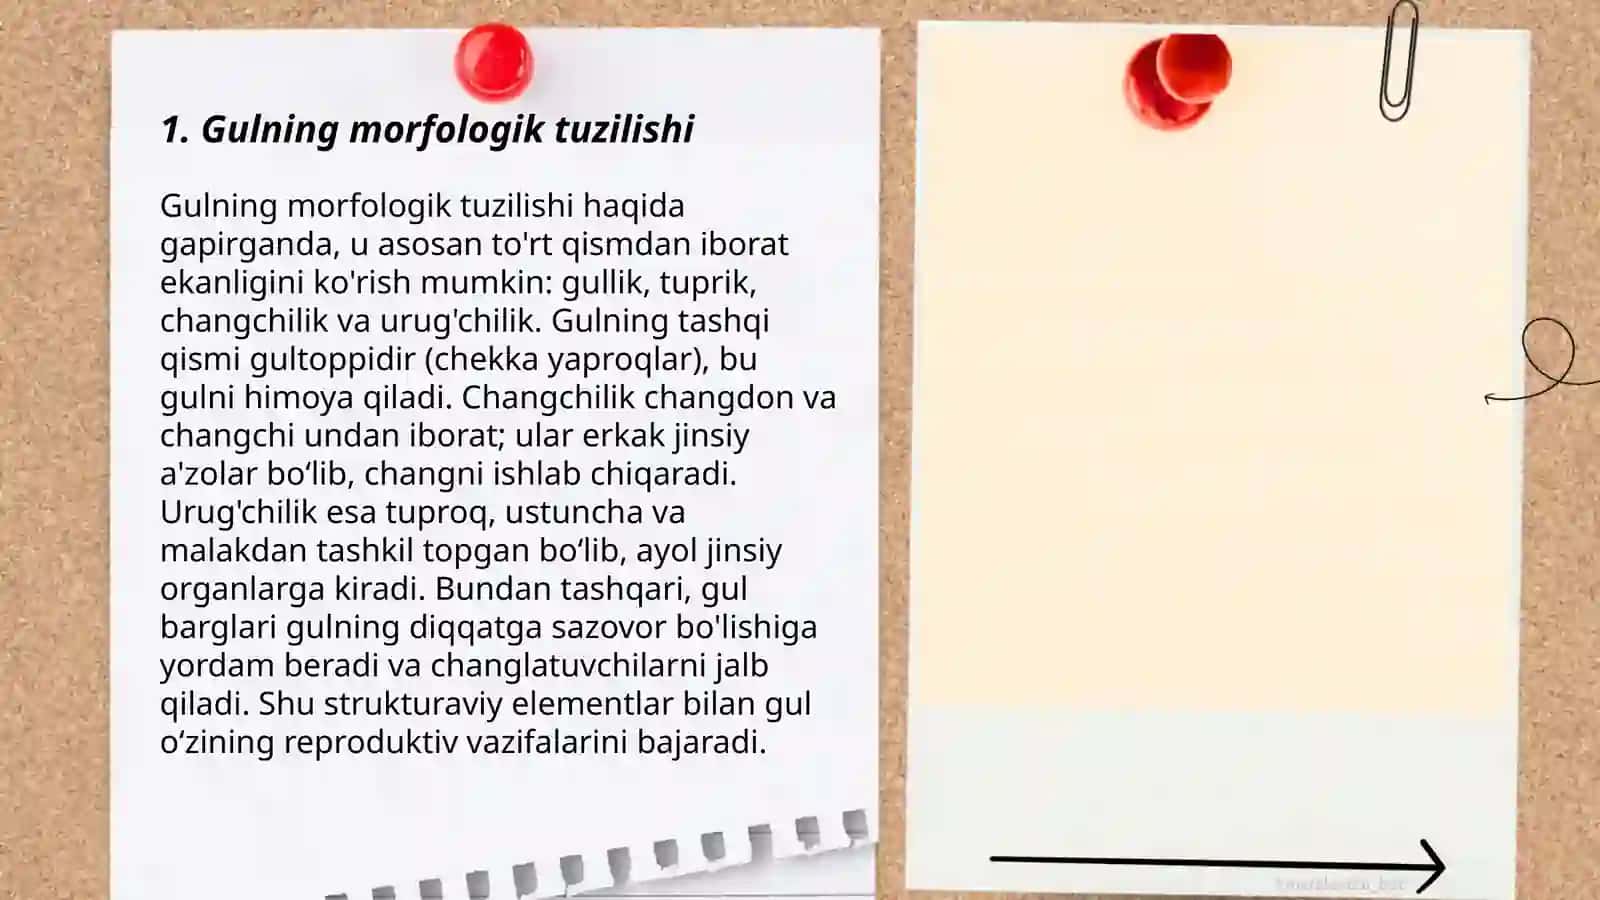 1. Gulning morfologik tuzilishi
Gulning morfologik tuzilishi haqida
gapirganda, u asosan to'rt qismdan iborat
ekanligini ko'rish mumkin: gullik, tuprik,
changchilik va urug'chilik. Gulning tashqi
qismi gultoppidir (chekka yaproqlar), bu
gulni himoya qiladi. Changchilik changdon va
changchi undan iborat; ular erkak jinsiy
a'zolar bo‘lib, changni ishlab chiqaradi.
Urug'chilik esa tuproq, ustuncha va
malakdan tashkil topgan bo‘lib, ayol jinsiy
organlarga kiradi. Bundan tashqari, gul
barglari gulning diqqatga sazovor bo'lishiga
yordam beradi va changlatuvchilarni jalb
qiladi. Shu strukturaviy elementlar bilan gul
o‘zining reproduktiv vazifalarini bajaradi.